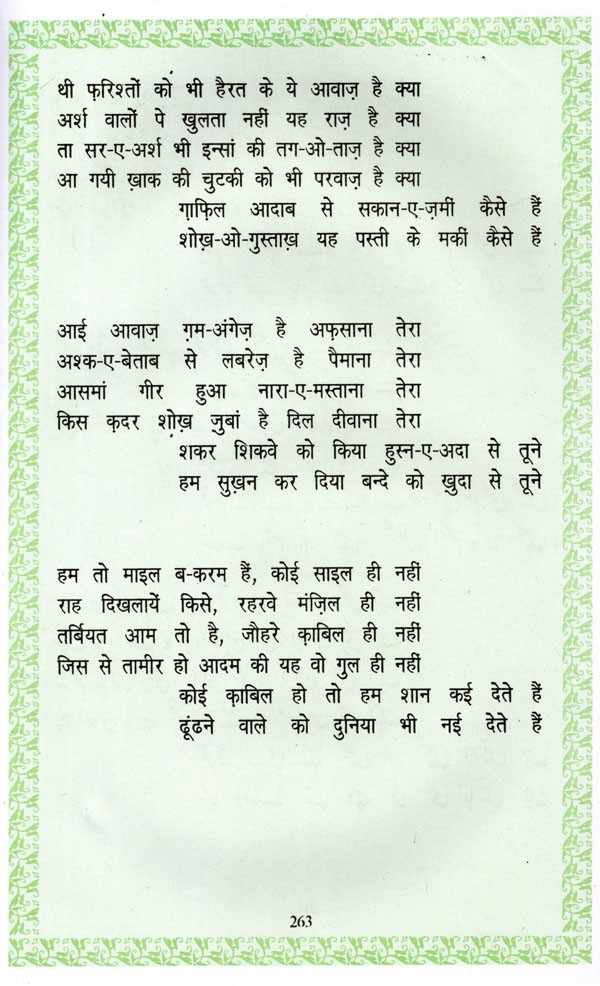 थी फ़रिश्तों को भी हैरत के ये आवाज़ है क्या
अर्श वालों पे खुलता नहीं यह राज़ है क्या
ता सर-ए-अर्श भी इन्सां की तग-ओ-ताज़ है क्या
आ गयी ख़ाक की चुटकी को भी परवाज़ है क्या
ग़ाफ़िल आदाब से सकान-ए-ज़मीं कैसे हैं
शोख़-ओ-गुस्ताख़ यह पस्ती के मकीं कैसे हैं
आई आवाज़ ग़म-अंगेज़ है अफ़साना तेरा
अश्क-ए-बेताब से लबरेज़ है पैमाना तेरा
आसमां गीर हुआ नारा-ए-मस्ताना तेरा
किस क़दर शोख़ ज़ुबां है दिल दीवाना तेरा
शकर शिकवे को किया हुस्न-ए-अदा से तूने
हम सुख़न कर दिया बन्दे को ख़ुदा से तूने
हम तो माइल ब-करम हैं, कोई साइल ही नहीं
राह दिखलायें किसे, रहरवे मंज़िल ही नहीं
तर्बियत आम तो है, जौहरे क़ाबिल ही नहीं
जिस से तामीर हो आदम की यह वो गुल ही नहीं
कोई क़ाबिल हो तो हम शान कई देते हैं
ढूंढने वाले को दुनिया भी नई देते हैं
263